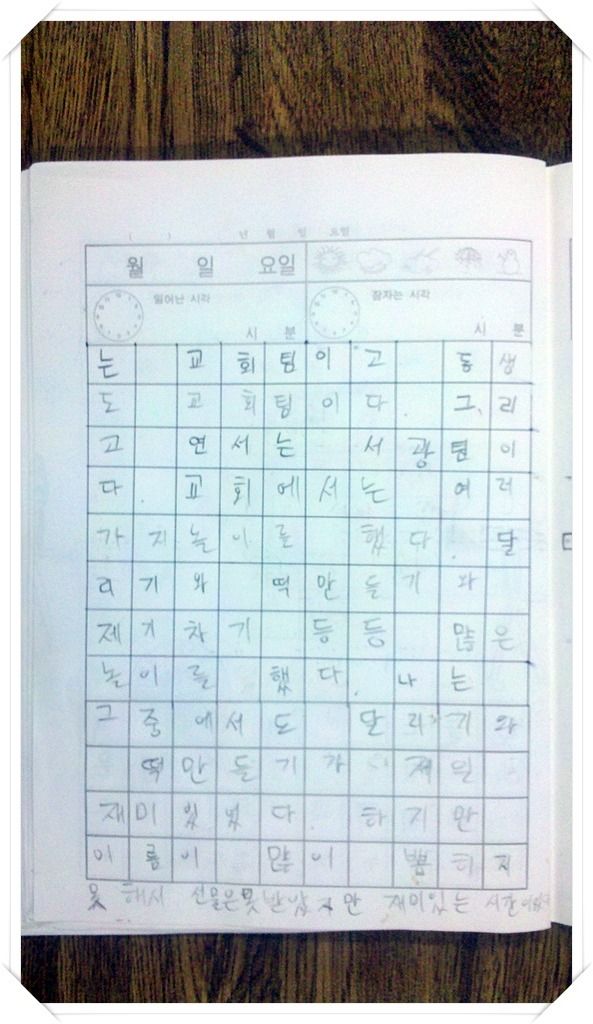 ( ) 년 월 일 요일
월 일 요일
일어난 시각 잠자는 시각
시 분 시 분
는 교회팀이고 동생
도 교회팀이다. 그리
고 연서는 서광팀이
다. 교회에서는 여러
가지놀이를 했다. 달
리기와 떡만들기와
제기차기 등등 많은
놀이를 했다. 나는
그중에서도 달리기와
떡만들기가 제일
재미있었다. 하지만
이름이 많이 뽑히지
못해서 선물은못받았지만 재미있는